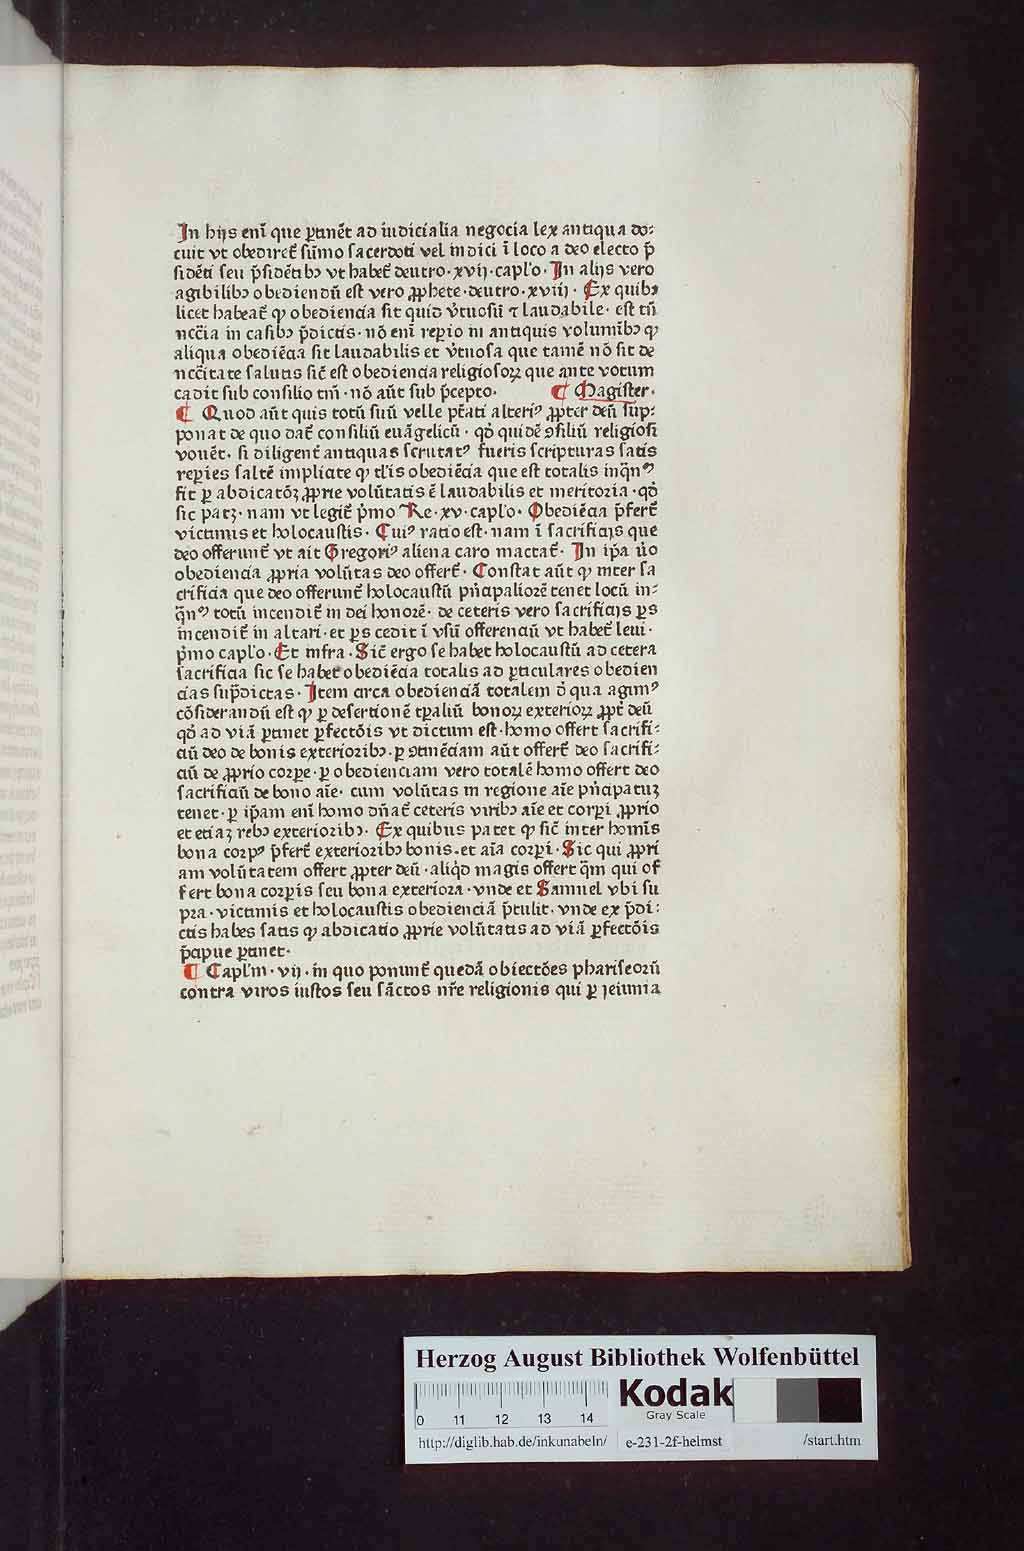 In hijs enī que ꝑtinēt ad iudicialia negocia lex antiqua do:
cuit vt obediret̄ sūmo sacerdoti vel iudici ī loco a deo electo p̄
sidēti seu p̄sidētibꝫ vt habet̄ deutro · xvij · capl'o · In alijs vero
agibilibꝫ obediendū est vero ꝓphete · deutro · xviij · Ex quibꝫ
licet habeat̄ ꝙ obediencia sit quid v̄tuosū ⁊ laudabile · est tn̄
nc̄c̄ia in casibꝫ p̄dictis · nō enī reperio in antiquis volumībꝫ ꝙ
aliqua obediēcia sit laudabilis et v̄tuosa que tamē nō sit de
nc̄citate salutis sic̄ est obediencia religiosoꝝ que ante votum
cadit sub consilio tm̄ · nō aūt sub p̄cepto · ¶ Magister ·
¶ Quod aūt quis totū suū velle pt̄ati alteriꝰ ꝓpter deū sup:
ponat de quo dat̄ consiliū euāgelicū · qd̄ quidē ꝯsiliū religiosi
vouēt · si diligent̄ antiquas scrutatꝰ fueris scripturas satis
reperies saltē implicite ꝙ tl'is obediēcia que est totalis inq̄nꝰ
fit ꝑ abdicatōꝫ ꝓprie volūtatis ē laudabilis et meritoria · qd̄
sic patꝫ · nam vt legit̄ p̄mo Re · xv · capl'o · Obediēcia p̄fert̄
victimis et holocaustis · Cuiꝰ ratio est · nam ī sacrificijs que
deo offerunt̄ vt ait Gregoriꝰ aliena caro mactat̄ · In ip̄a u̇o
obediencia ꝓpria volūtas deo offert̄ · Constat aūt ꝙ inter sa
crificia que deo offerunt̄ holocaustū pn̄cipaliorē tenet locū in:
q̄nꝰ totū incendit̄ in dei honorē · de ceteris vero sacrificijs ꝑs
incendit̄ in altari · et ꝑs cedit ī vsū offerenciū vt habet̄ leui ·
p̄mo capl'o · Et infra · Sic̄ ergo se habet holocaustū ad cetera
sacrificia sic se habet obediēcia totalis ad ꝑticulares obedien
cias sup̄dictas · Item circa obedienciā totalem d̄ qua agimꝰ
cōsiderandū est ꝙ ꝑ desertionē tꝑaliū bonoꝝ exterioꝝ ꝓpt̄ deū
qd̄ ad viā ꝑtinet ꝑfectōis vt dictum est · homo offert sacrifi:
ciū deo de bonis exterioribꝫ · ꝑ ꝯtinēciam aūt offert̄ deo sacrifi:
ciū de ꝓprio corpe · ꝑ obedienciam vero totalē homo offert deo
sacrificiū de bono aīe · cum volūtas in regione aīe pn̄cipatuꝫ
tenet · ꝑ ip̄am enī homo dn̄at̄ ceteris viribꝫ aīe et corpi ꝓprio
et etiaꝫ rebꝫ exterioribꝫ · Ex quibus patet ꝙ sic̄ inter homīs
bona corpꝰ p̄fert̄ exterioribꝫ bonis · et aīa corpi · Sic qui ꝓpri
am volūtatem offert ꝓpter deū · aliqͥd magis offert q̄m qui of
fert bona corpis seu bona exteriora · vnde et Samuel vbi su
pra · victimis et holocaustis obedienciā p̄tulit · vnde ex p̄di:
ctis habes satis ꝙ abdicatio ꝓprie volūtatis ad viā ꝑfectōis
p̄cipue ꝑtinet ·
¶ Capl'm · vij · in quo ponunt̄ quedā obiectōes phariseorū
contra viros iustos seu sāctos nr̄e religionis qui ꝑ jeiunia
Herzog August Bibliothek Wolfenbüttel
Kodak
Gray Scale
0 11 12 13 14
http://diglib.hab.de/inkunabeln/ e-231-2f-helmst /start.htm